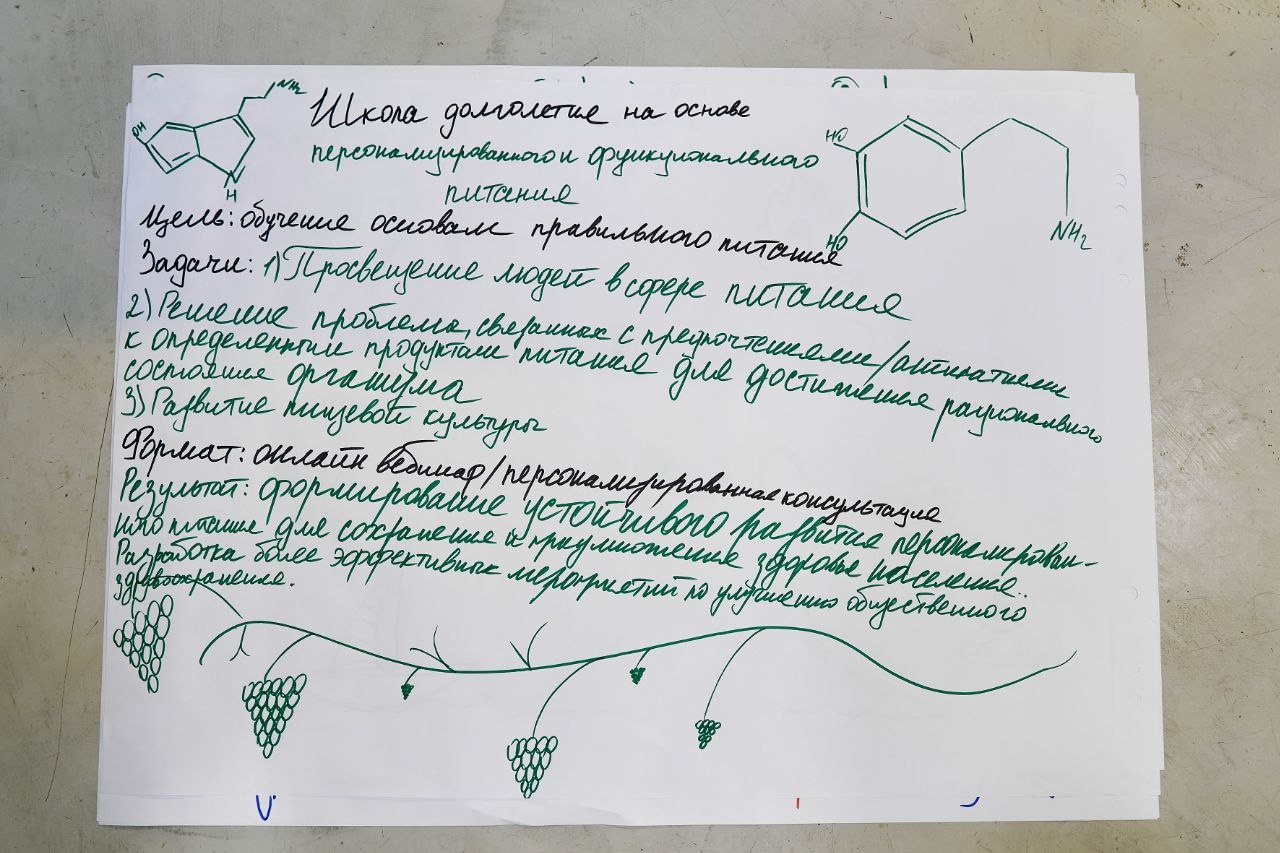 Школа долголетие на основе
персонализированного и функционального
питания
Цель: обучение основам правильного питания
Задачи: 1) Просвещение людей в сфере питания
2) Решение проблемы, связанных с предпочтениями/антипатиями
к определенным продуктам питания для достижения рационального
состояния организма
3) Развитие пищевой культуры
Формат: онлайн вебинар/персонализированная консультация
Результат: формирование устойчивого развития персонализирован-
ного питание для сохранения и приумножения здоровье населения..
Разработка более эффективных мероприятий по улучшению общественного
здравоохранения.
OH
NH2
N
H
HO
HO
NH2